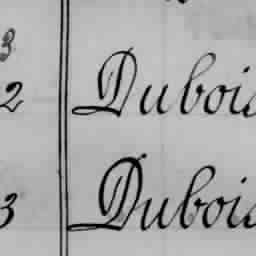 3
2 Dubois
3 Dubois